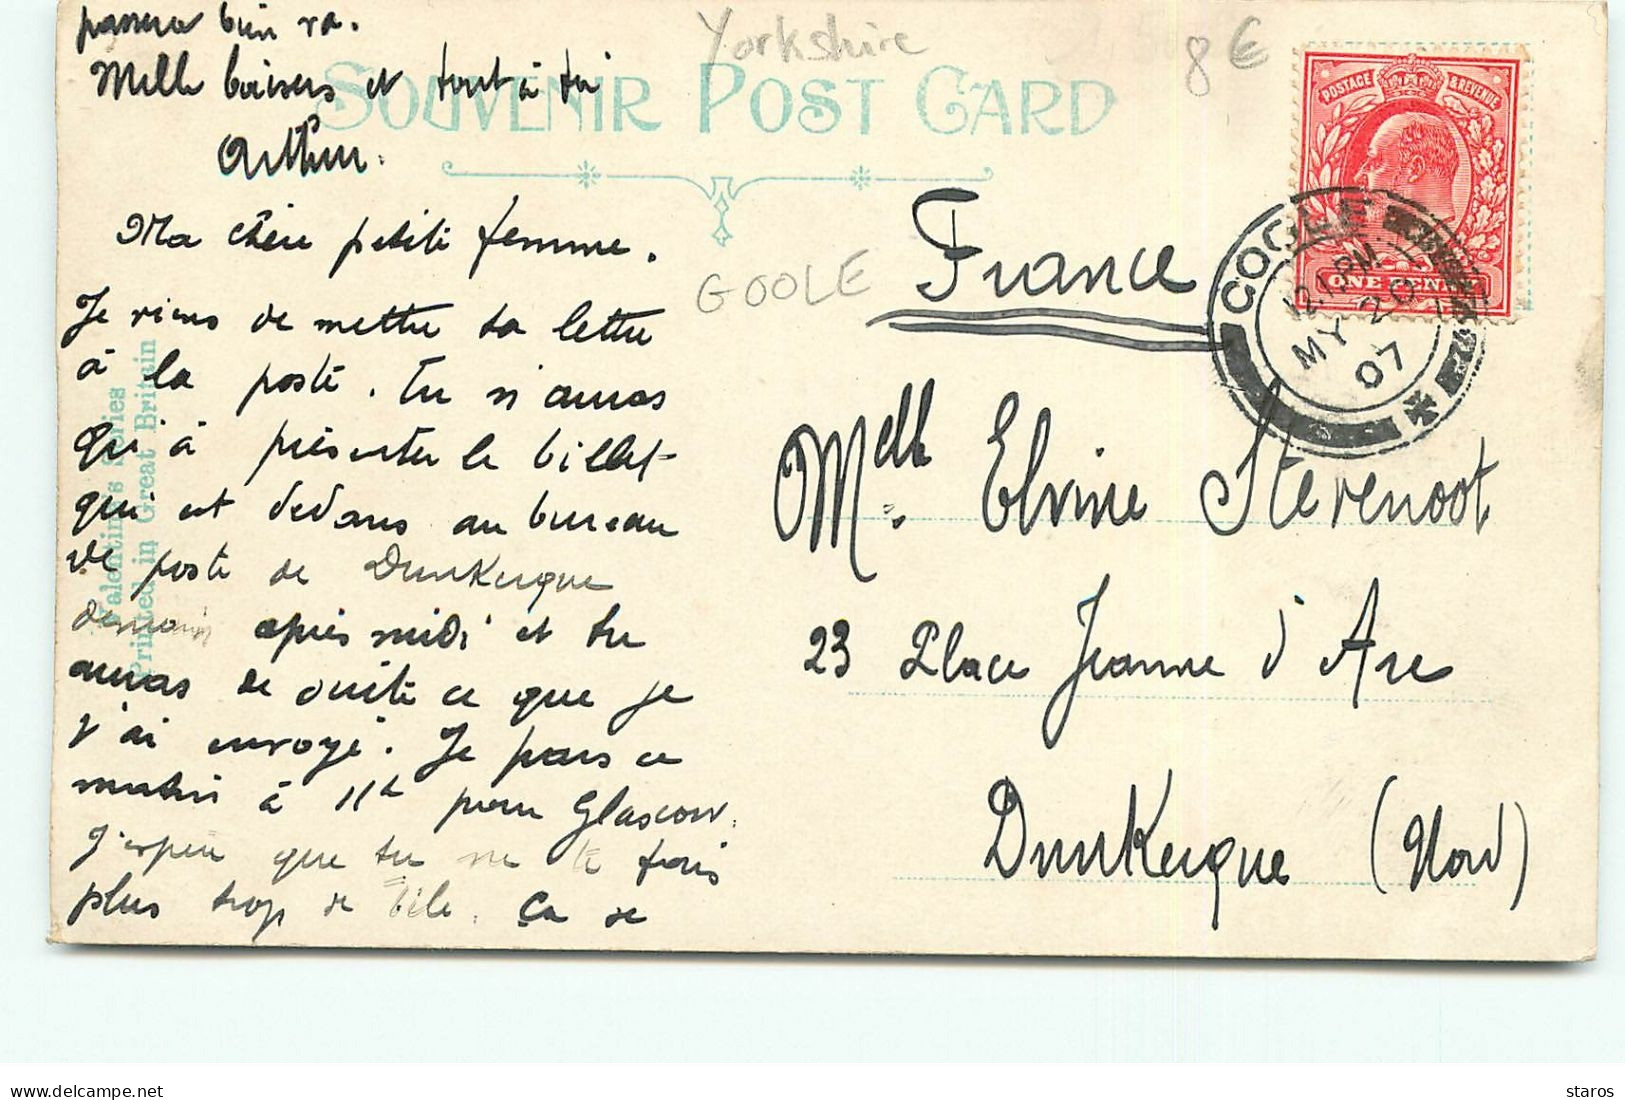 passera bien va.
Mille baisers et tout à toi
Arthur.
Yorkshire
8 €
SOUVENIR POST CARD
POSTAGE & REVENUE
ONE PENNY
GOOLE
12.1 PM
MY 20
07
Ma chère petite femme.
Je viens de mettre ta lettre
à la poste. Tu n'auras
qu'à présenter le billet
qui est dedans au bureau
de poste de Dunkerque
demain après midi et tu
auras de suite ce que je
t'ai envoyé. Je pars ce
matin à 11h pour Glascow.
J'espère que tu ne te fais
plus trop de bile. Ça se
Valentine's Series
Printed in Great Britain
GOOLE
France
Melle. Elvine Stevenoot
23 Place Jeanne d'Arc
Dunkerque (Nord)
staros